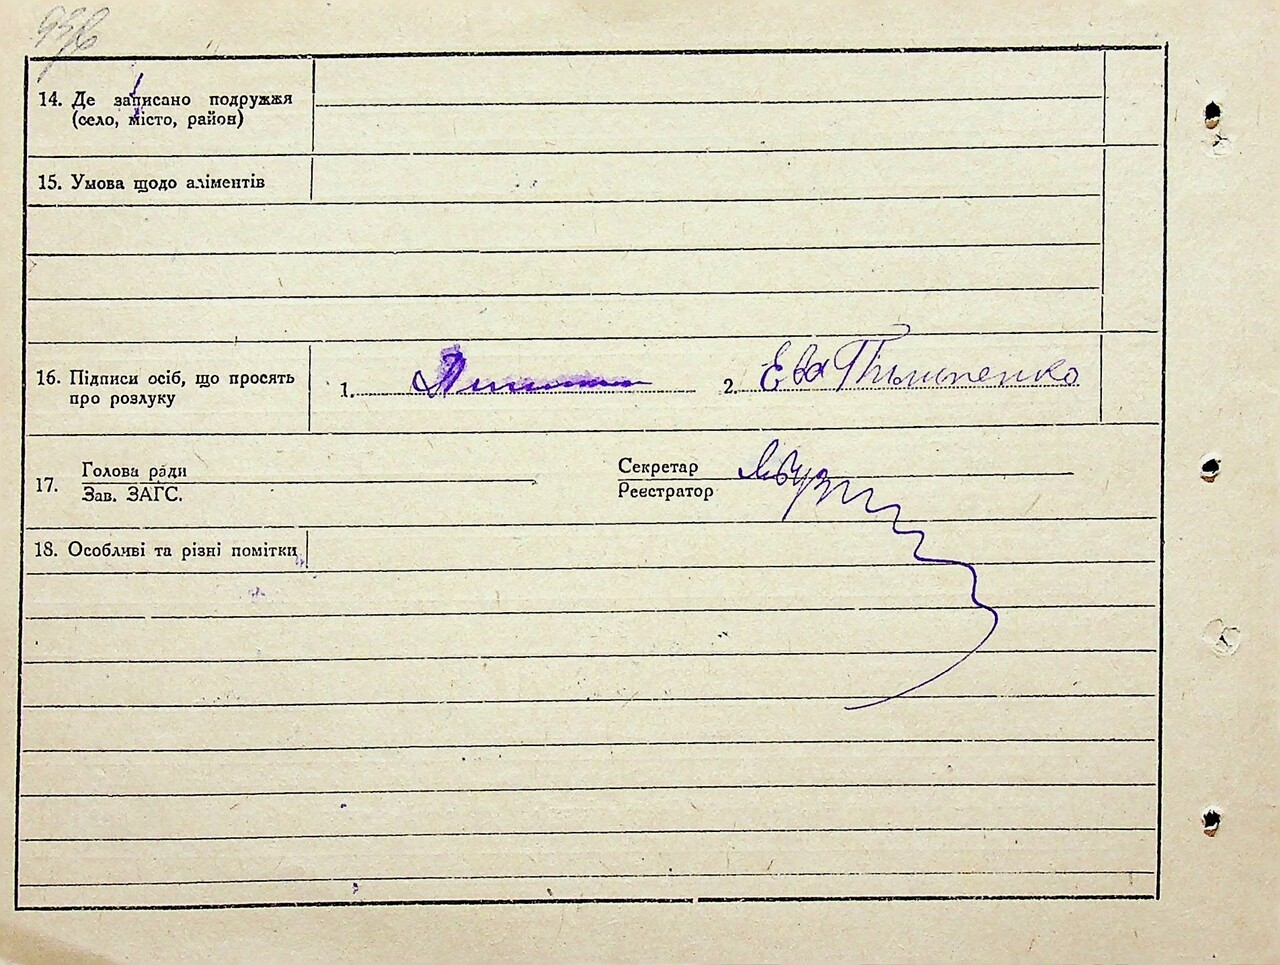 14. Де записано подружжя
(село, місто, район)
15. Умова щодо аліментів
16. Підписи осіб, що просять
про розлуку
1.
2. Ева
17. Голова ради
Зав. ЗАГС.
Секретар
Реєстратор
18. Особливі та різні помітки